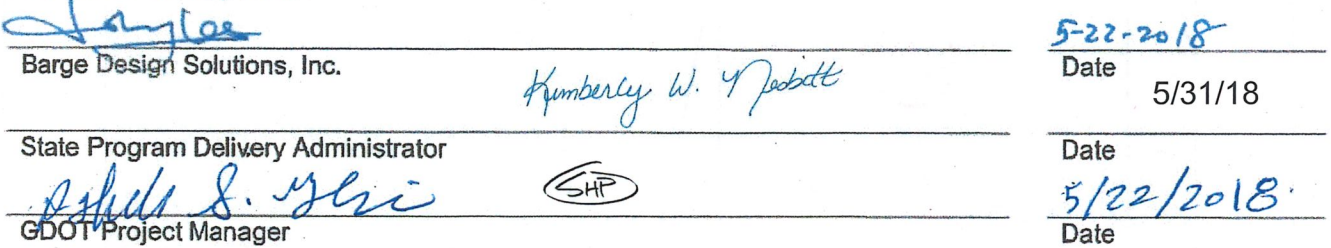 5-22-2018
Barge Design Solutions, Inc. Date
Kimberly W. Nesbitt 5/31/18
State Program Delivery Administrator Date
S. SHP 5/22/2018
GDOT Project Manager Date